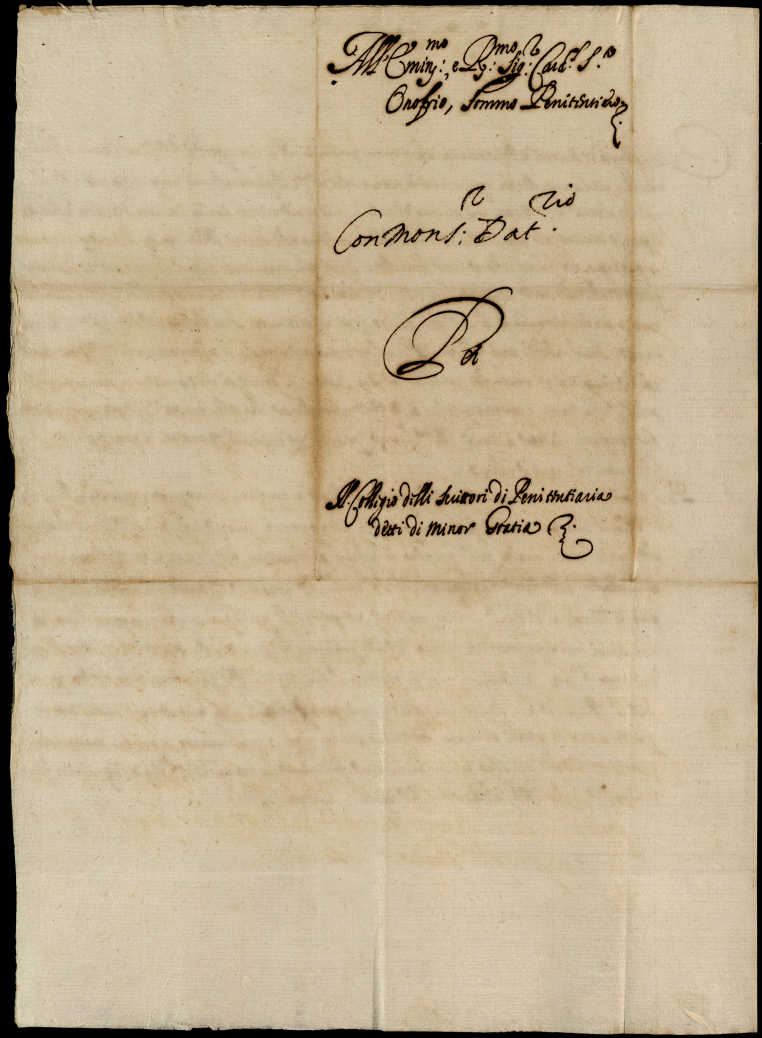 All'Emin:mo, e R:mo Sig:r Card.l S.o
Onofrio, Sommo Penitentiero
Con Mons:r Dat.rio
Per
Il Collegio delli scrittori di Penitentiaria
detti di minor Gratia